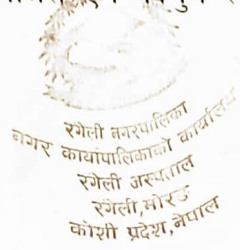 रंगेली नगरपालिका
नगर कार्यापालिकाको कार्यालय
रंगेली अस्पताल
रंगेली, मोरङ
कोशी प्रदेश, नेपाल